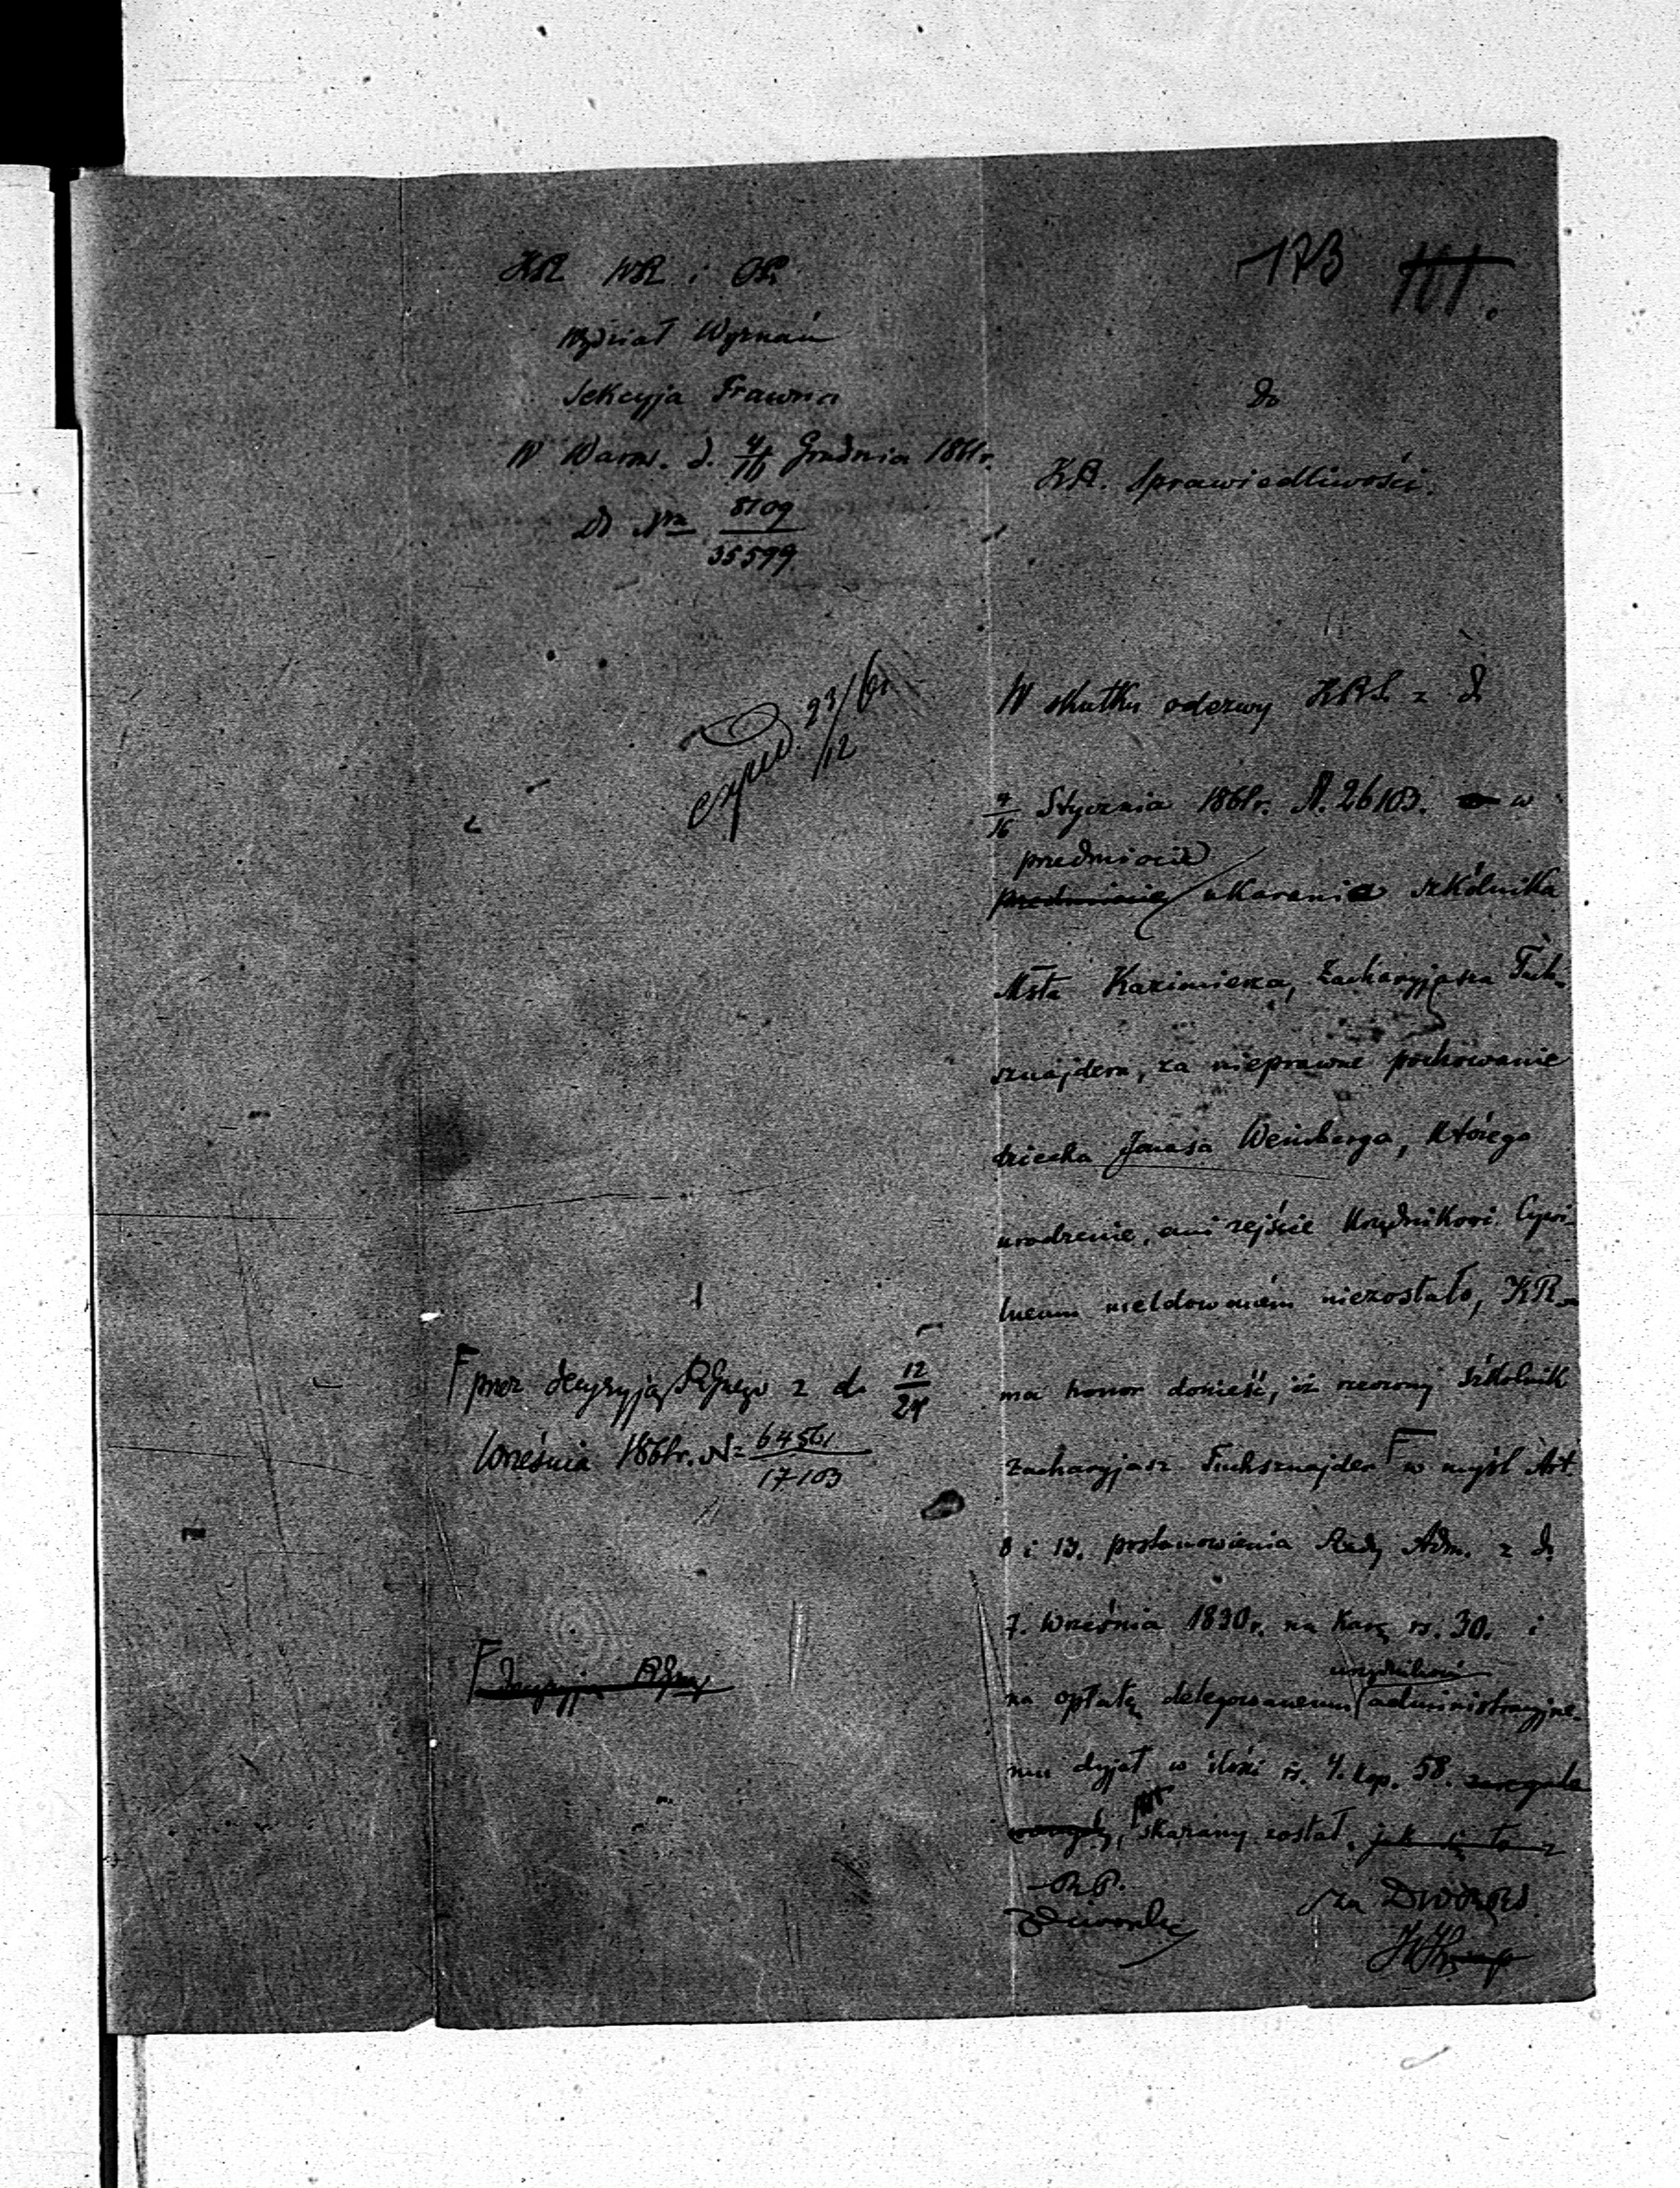 173 101.
KR WR i OP.
Wydział Wyznań
Sekcyja Prawna
W Warsz. d. 4/16 Grudnia 1861r.
Do Nra 8709/35599
Do
KR. Sprawiedliwości.
exped. 23/12 61
W skutku odezwy KRS. z d.
4/16 Stycznia 1861r. N. 26103. w
przedmiocie
przedmiocie ukarania szkólnika
Msta Kazimierza, Zacharyjasza Fuch-
sznajdera, za nieprawne pochowanie
dziecka Jonasa Weinberga, którego
urodzenie, ani zejście Urzędnikowi Cywi-
lnemu meldowaném niezostało, KR
ma honor donieść, iż rzeczony Szkolnik
Zacharyjasz Fuchsznajder w myśl Art.
8 i 13. postanowienia Rady Adm. z d.
7. Września 1830r. na karę rs. 30. i
urzędnikowi
na opłatę delegowanemu administracyjne-
mu dyjet w ilości rs. 4. kop. 58.
skazany został. jak się to z
przez decyzyją RGnego z d. 12/24
Września 1861r. N= 6456/17103
decyzyją RGnego
za DWORKS.